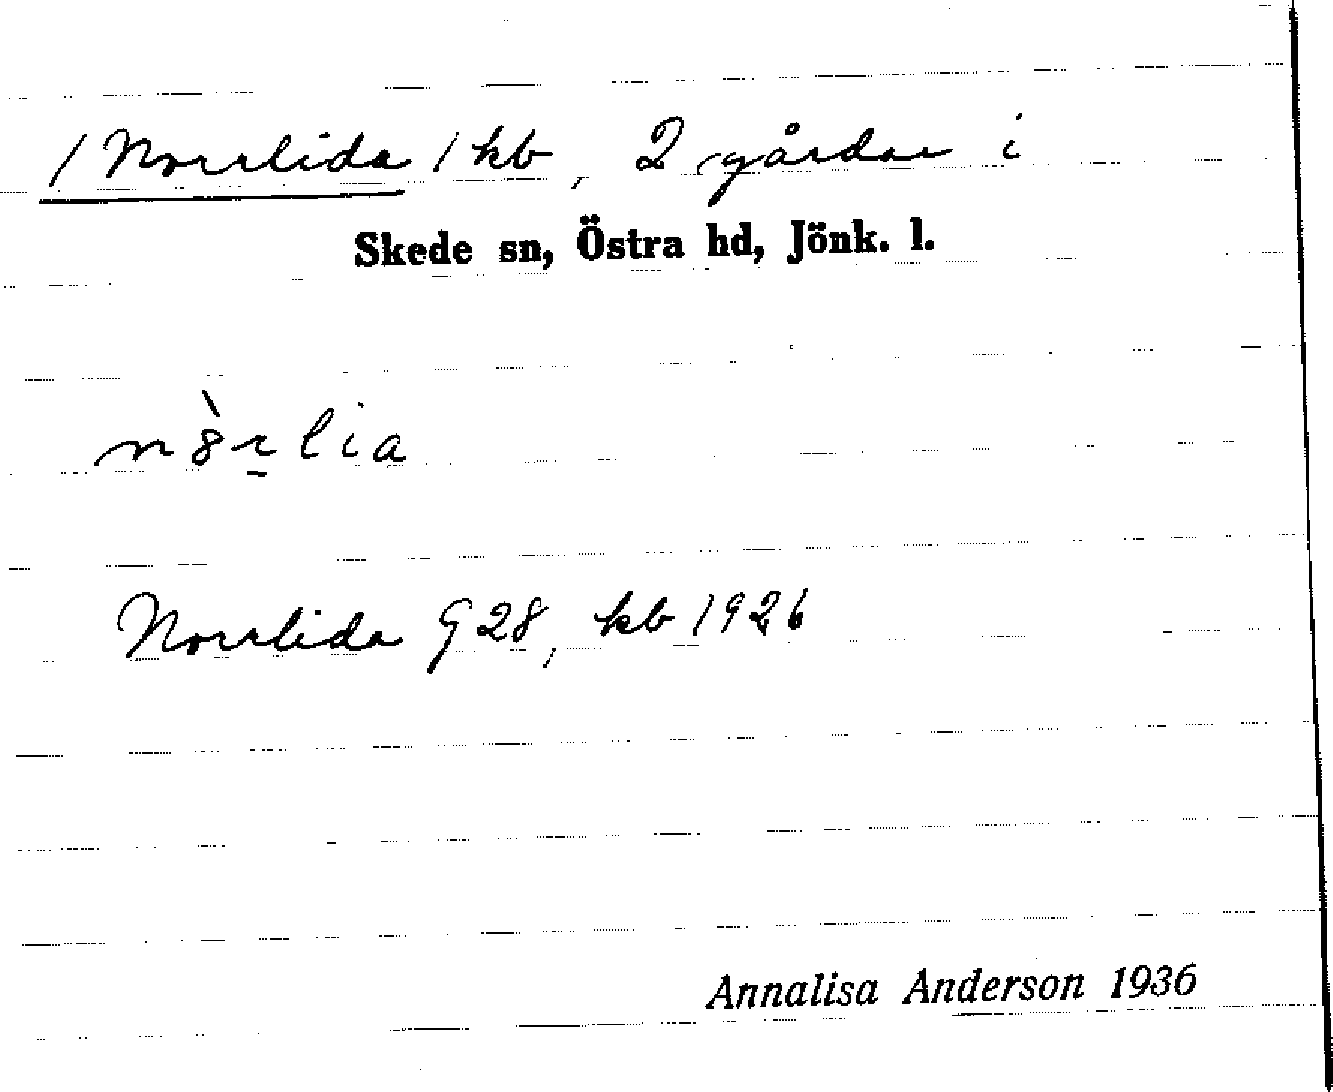 / Norrlida / kb, 2 gårdar i
Skede sn, Östra hd, Jönk. l.
n8̀r̠lia
Norrlida G 28, kb 1926
Annalisa Anderson 1936